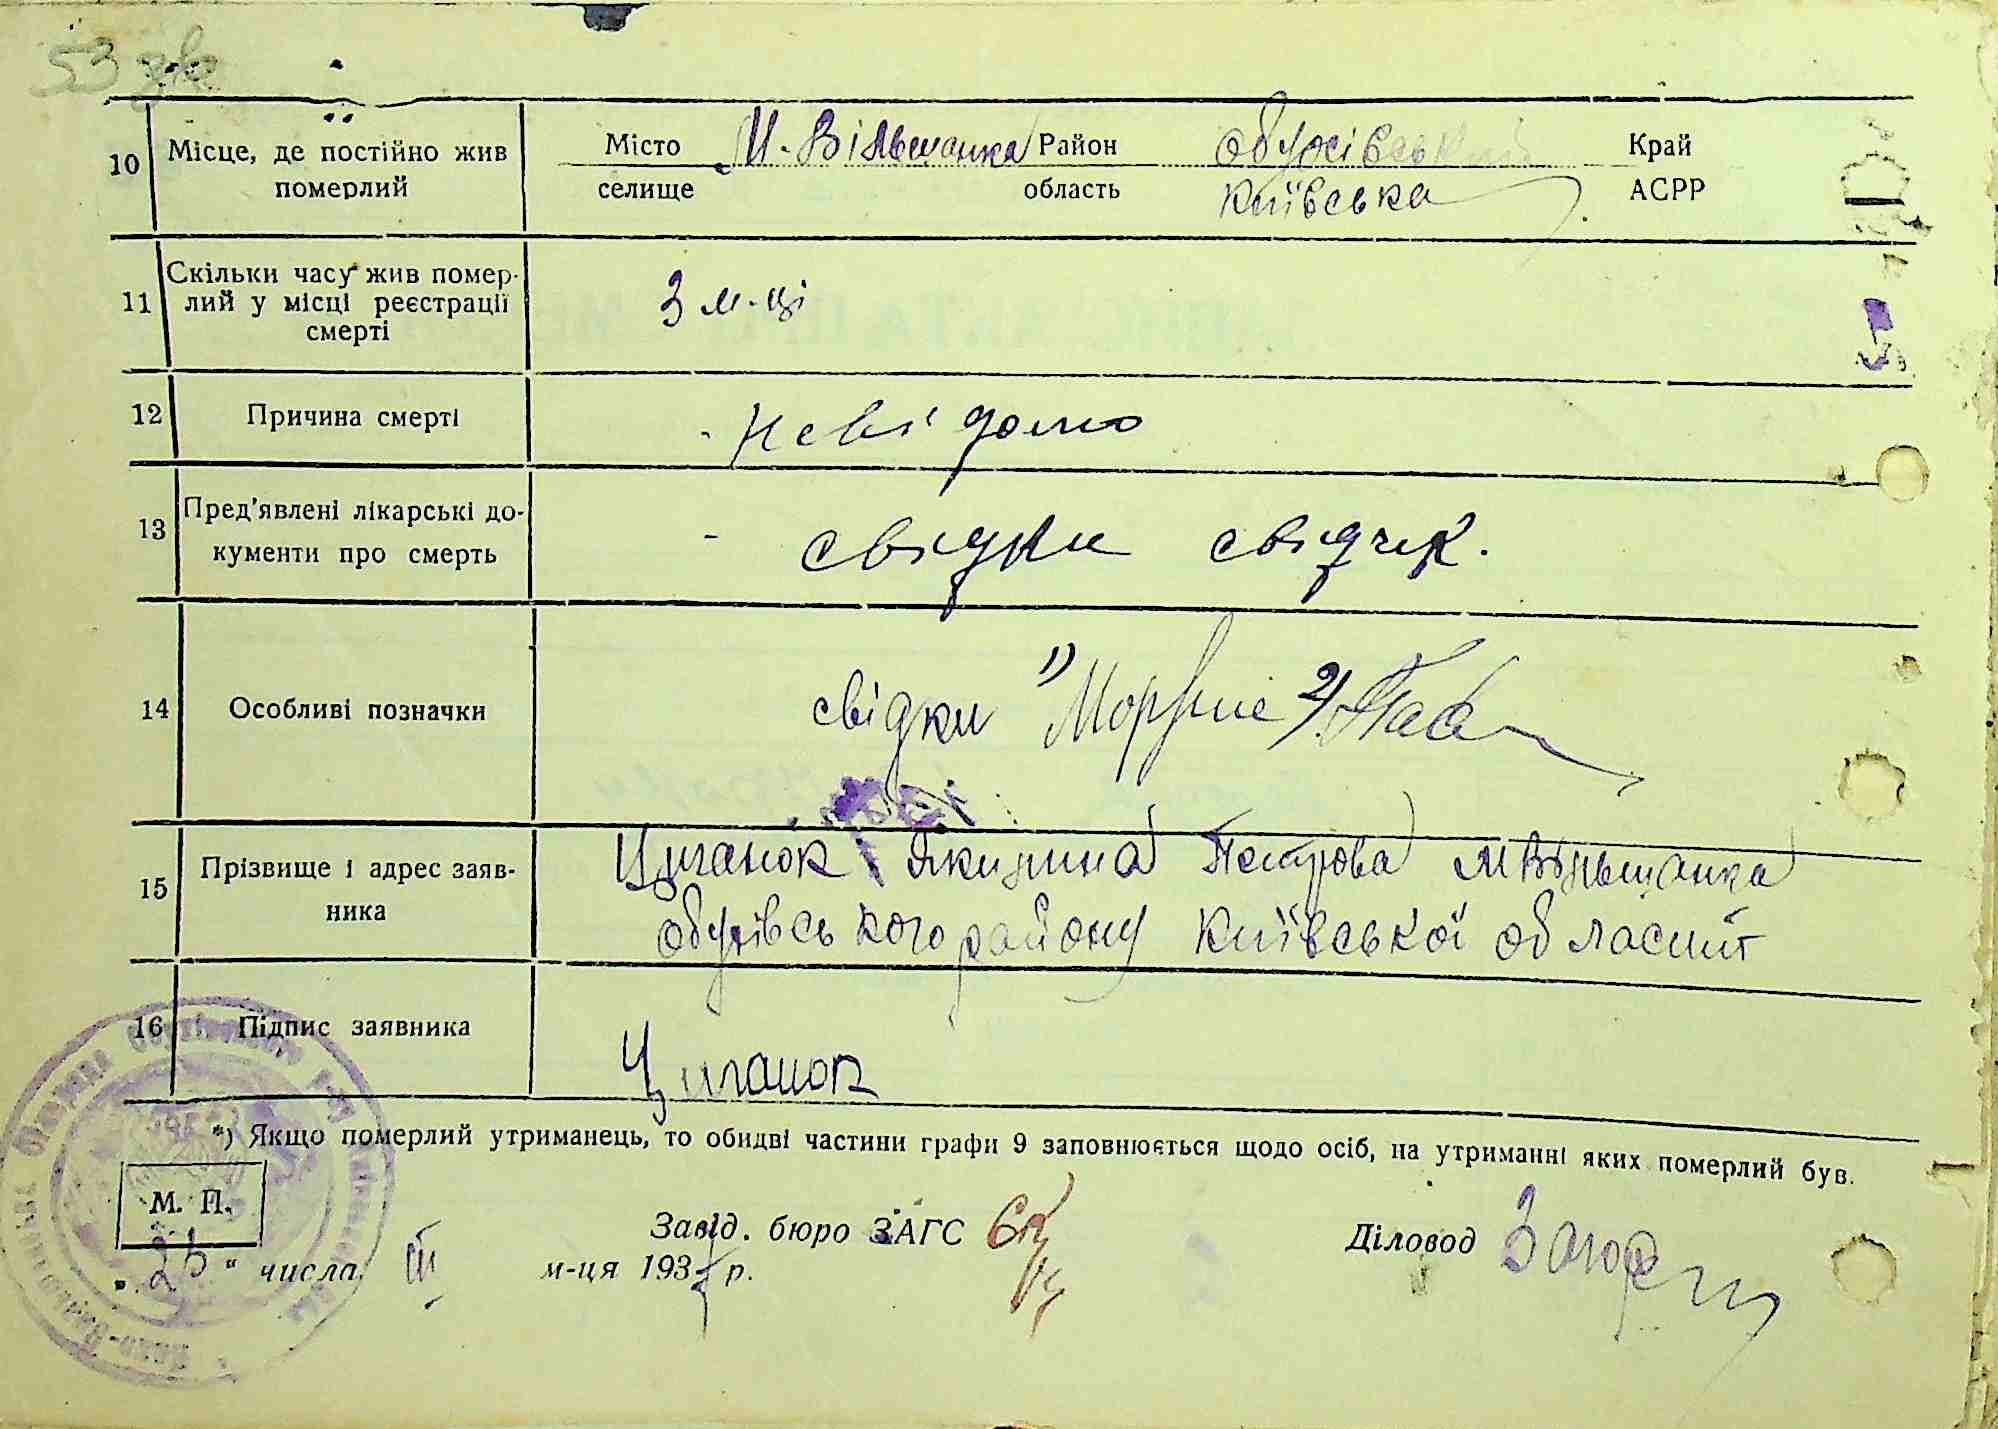 53 зв
10 Місце, де постійно жив померлий
Місто М. Вільшанка Район обухівський Край
селище область Київська АСРР
11 Скільки часу жив помер-
лий у місці реєстрації
смерті
3 м-ці
12 Причина смерті
- невідомо
13 Пред'явлені лікарські до-
кументи про смерть
- свідки свідчик.
14 Особливі позначки
свідки 1) 2)
15 Прізвище і адрес заяв-
ника
Циганок Якилина Петрова М Вільшанка
обухівського району Київської області
16 Підпис заявника
Циганок
*) Якщо померлий утриманець, то обидві частини графи 9 заповнюється щодо осіб, на утриманні яких померлий був.
М. П.
Завід. бюро ЗАГС
Діловод
„ " числа III м-ця 193 р.